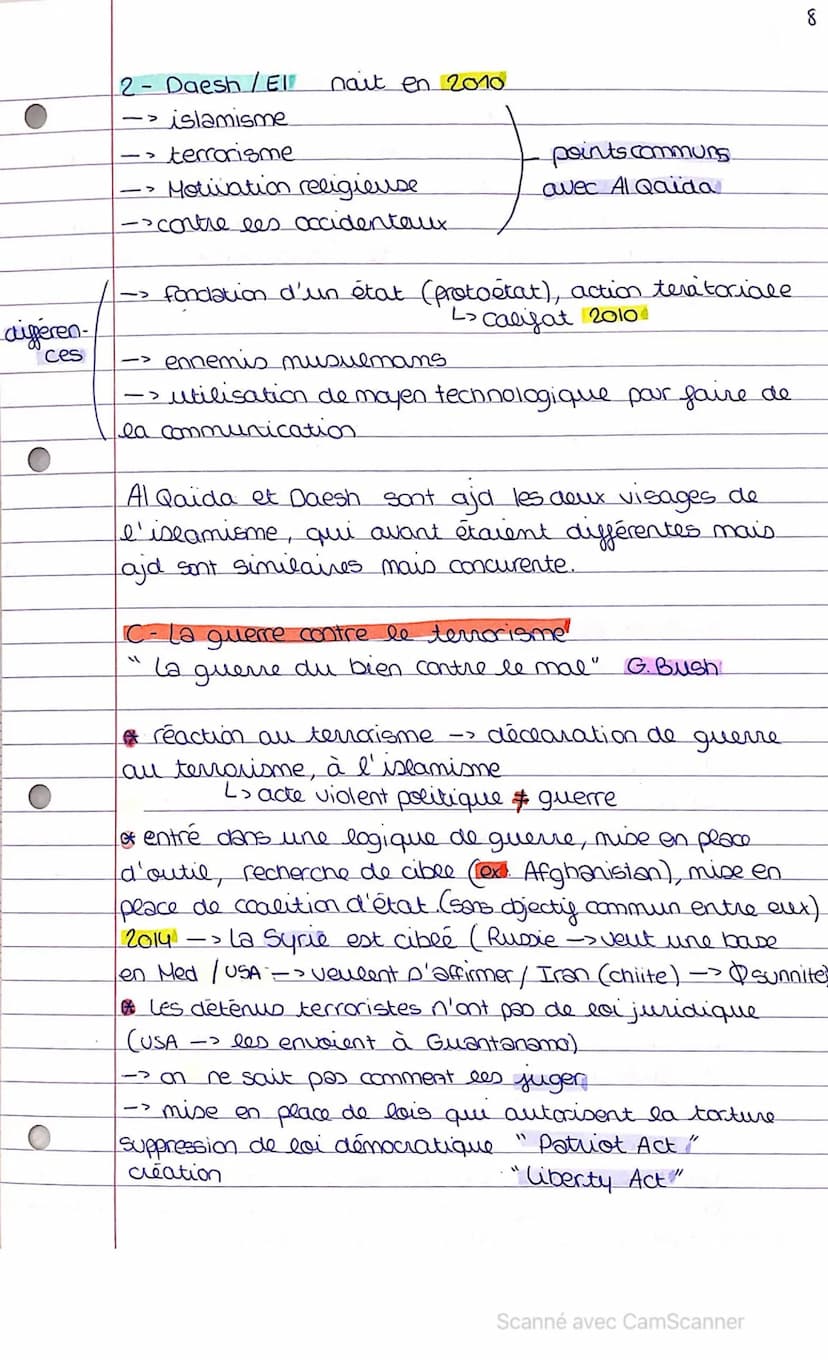 8
2 - Daesh / EI nait en 2010
-> islamisme
-> terrorisme
-> Motivation religieuse
-> contre les occidentaux
points communs
avec Al Qaïda
différen-
ces
-> fondation d'un état (protoétat), action teritoriale
↳ califat 2010
-> ennemis musulmans
-> utilisation de moyen technologique par faire de
la communication
Al Qaida et Daesh sont ajd les deux visages de
l'islamisme, qui avant étaient différentes mais
ajd sont similaires mais concurente.
C - La guerre contre le terrorisme
" La guerre du bien contre le mal" G. Bush
* réaction au terrorisme -> déclaration de guerre
au terrorisme, à l'islamisme
↳ acte violent politique ≠ guerre
* entré dans une logique de guerre, mise en place
d'outil, recherche de cible (ex. Afghanistan), mise en
place de coalition d'état. (sans objectif commun entre eux)
2014 -> la Syrie est cibeé (Russie -> veut une base
en Med / USA -> veulent s'affirmer / Iran (chiite) -> Φ sunnite)
* Les déténus terroristes n'ont pas de loi juridique
(USA -> les envoient à Guantanamo)
-> on ne sait pas comment les juger
-> mise en place de lois qui autorisent la torture
suppression de loi démocratique " Patriot Act "
création "Liberty Act"
Scanné avec CamScanner